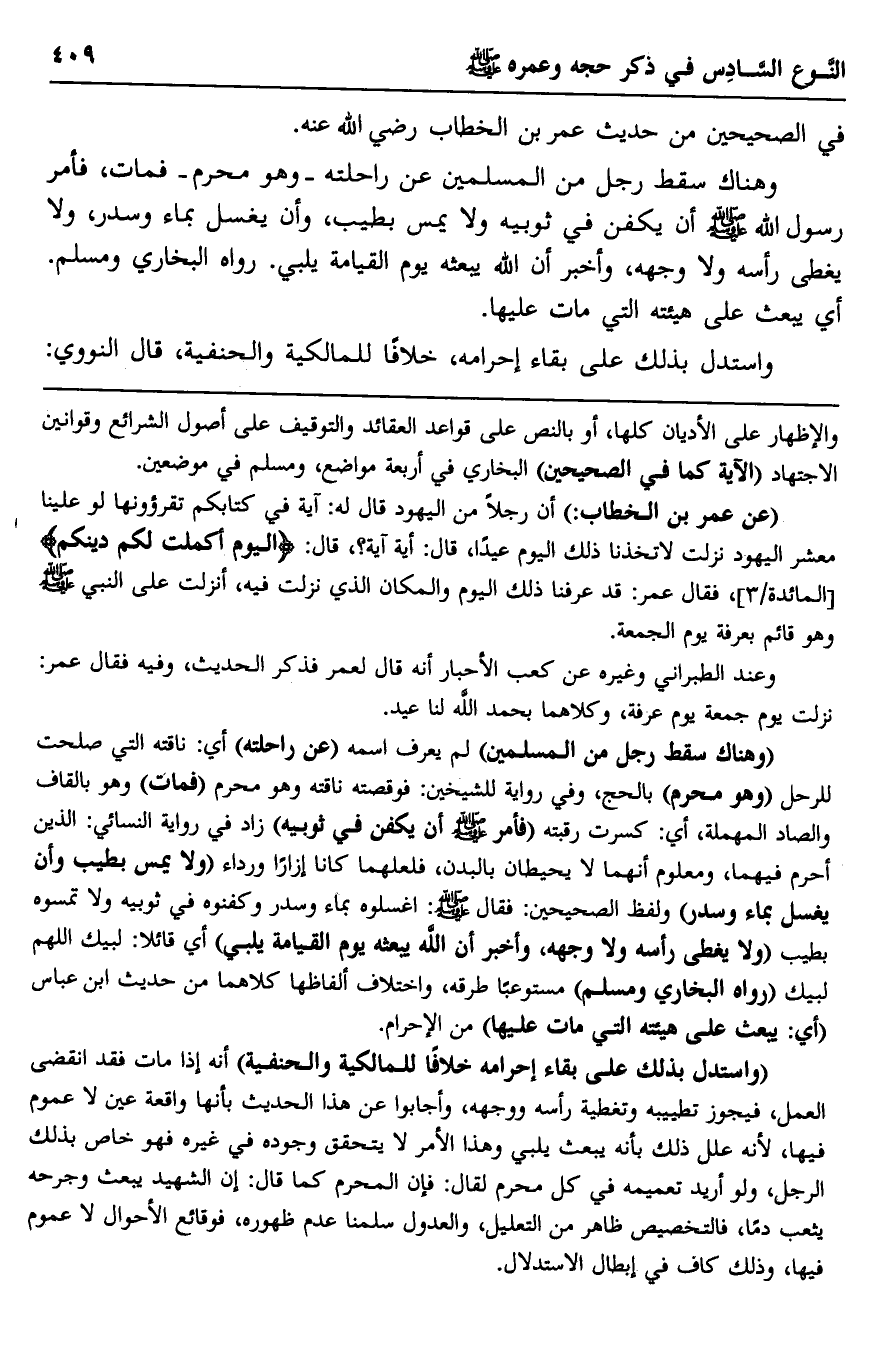 النَّوع السَّادِس في ذكر حجه وعمره ﷺ ٤٠٩
في الصحيحين من حديث عمر بن الخطاب رضي الله عنه.
وهناك سقط رجل من المسلمين عن راحلته ـ وهو محرم ـ فمات، فأمر
رسول الله ﷺ أن يكفن في ثوبيه ولا يمس بطيب، وأن يغسل بماء وسدر، ولا
يغطى رأسه ولا وجهه، وأخبر أن الله يبعثه يوم القيامة يلبي. رواه البخاري ومسلم.
أي يبعث على هيئته التي مات عليها.
واستدل بذلك على بقاء إحرامه، خلافًا للمالكية والحنفية، قال النووي:
والإظهار على الأديان كلها، أو بالنص على قواعد العقائد والتوقيف على أصول الشرائع وقوانين
الاجتهاد (الآية كما في الصحيحين) البخاري في أربعة مواضع، ومسلم في موضعين.
(عن عمر بن الخطاب:) أن رجلاً من اليهود قال له: آية في كتابكم تقرؤونها لو علينا
معشر اليهود نزلت لاتخذنا ذلك اليوم عيدًا، قال: أية آية؟، قال: ﴿اليوم أكملت لكم دينكم﴾
[المائدة/٣]، فقال عمر: قد عرفنا ذلك اليوم والمكان الذي نزلت فيه، أنزلت على النبي ﷺ
وهو قائم بعرفة يوم الجمعة.
وعند الطبراني وغيره عن كعب الأحبار أنه قال لعمر فذكر الحديث، وفيه فقال عمر:
نزلت يوم جمعة يوم عرفة، وكلاهما بحمد اللَّه لنا عيد.
(وهناك سقط رجل من المسلمين) لم يعرف اسمه (عن راحلته) أي: ناقته التي صلحت
للرحل (وهو محرم) بالحج، وفي رواية للشيخين: فوقصته ناقته وهو محرم (فمات) وهو بالقاف
والصاد المهملة، أي: كسرت رقبته (فأمر ﷺ أن يكفن في ثوبيه) زاد في رواية النسائي: الذين
أحرم فيهما، ومعلوم أنهما لا يحيطان بالبدن، فلعلهما كانا إزارًا ورداء (ولا يمس بطيب وأن
يغسل بماء وسدر) ولفظ الصحيحين: فقال ﷺ: اغسلوه بماء وسدر وكفنوه في ثوبيه ولا تمسوه
بطيب (ولا يغطى رأسه ولا وجهه، وأخبر أن اللَّه يبعثه يوم القيامة يلبي) أي قائلا: لبيك اللهم
لبيك (رواه البخاري ومسلم) مستوعبًا طرقه، واختلاف ألفاظها كلاهما من حديث ابن عباس
(أي: يبعث على هيئته التي مات عليها) من الإحرام.
(واستدل بذلك على بقاء إحرامه خلافًا للمالكية والحنفية) أنه إذا مات فقد انقضى
العمل، فيجوز تطييبه وتغطية رأسه ووجهه، وأجابوا عن هذا الحديث بأنها واقعة عين لا عموم
فيها، لأنه علل ذلك بأنه يبعث يلبي وهذا الأمر لا يتحقق وجوده في غيره فهو خاص بذلك
الرجل، ولو أريد تعميمه في كل محرم لقال: فإن المحرم كما قال: إن الشهيد يبعث وجرحه
يثعب دمًا، فالتخصيص ظاهر من التعليل، والعدول سلمنا عدم ظهوره، فوقائع الأحوال لا عموم
فيها، وذلك كاف في إبطال الاستدلال.